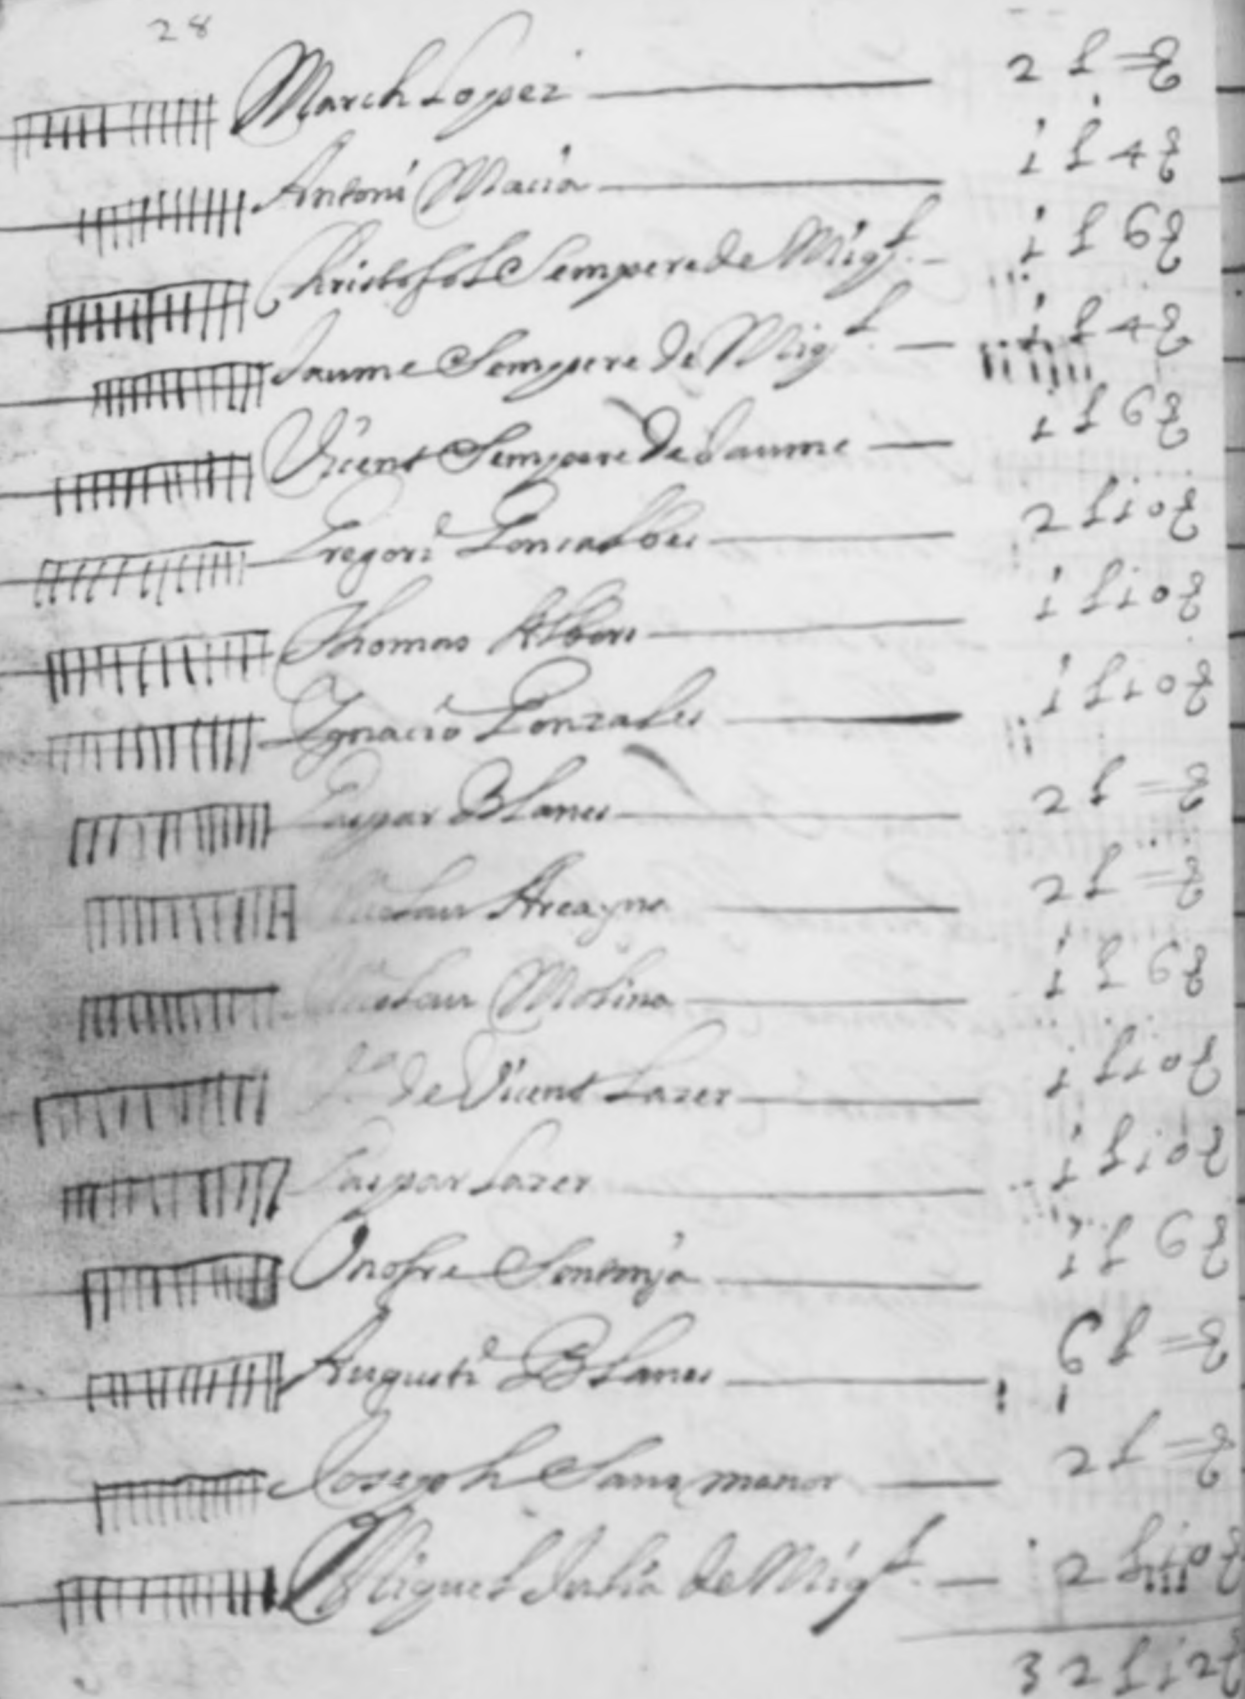 28
March Lopez 2 L = s
Antoni Macia 1 L 4 s
Christofol Sempere de Migl. 1 L 6 s
Jaume Sempere de Migl. 1 L 4 s
Vicent Sempere de Jaume 1 L 6 s
Gregori Gonsalbes 2 L 10 s
Thomas Albors 1 L 10 s
Ignacio Gonzales 1 L 10 s
Gaspar Blanes 2 L = s
Arcayna 2 L = s
Molina 1 L 6 s
de Vicent Lazer 1 L 10 s
Gaspar Lazer 1 L 10 s
Onofre Sentonja 1 L 6 s
Augusti Blanes 6 L = s
Joseph Sans menor 2 L = s
Miguel Julia de Migl. 2 L 10 s
32 L 12 s